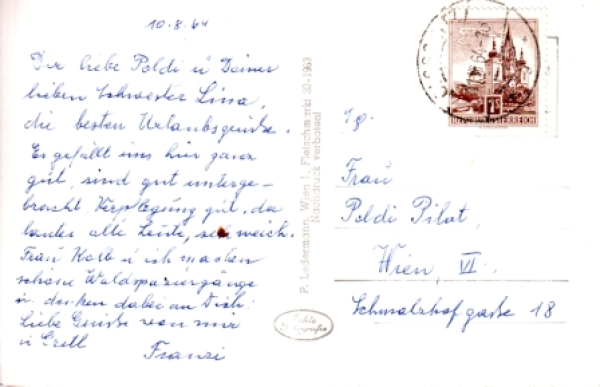 10.8.64
Dir liebe Poldi u Deiner
lieben Schwester Lina,
die besten Urlaubsgrüsse.
Es gefällt uns hier ganz
gut, sind gut unterge-
bracht Verpflegung gut, da
lauter alte Leute, weich.
Frau Kolb u ich machen
schöne Waldspaziergänge
u. denken dabei an Dich.
Liebe Grüsse von mir
u Gretl
Franzi
P. Ledermann, Wien I., Fleischmarkt 20-1963
Nachdruck verboten!
Echte
Fotografie
REPUBLIK ÖSTERREICH
Frau
Poldi Pilot,
Wien, VI.,
Schmalzhofgaße 18